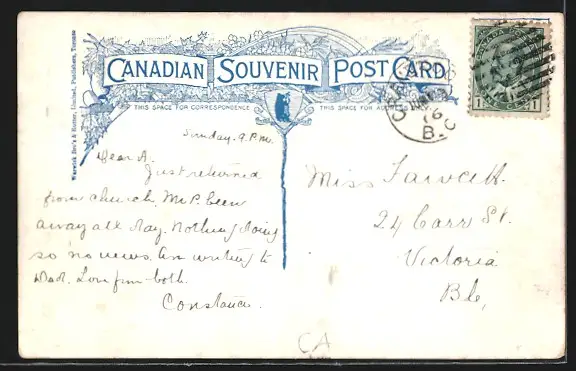 Warwick Bro's & Rutter, Limited, Publishers, Toronto
CANADIAN SOUVENIR POST CARD
THIS SPACE FOR CORRESPONDENCE
THIS SPACE FOR ADDRESS ONLY
CANADA
1 1
B.C
Sunday. 9 P.M.
Dear A.
Just returned
from church, Mr P. been
away all day. Nothing doing
so no news. Am writing to
Dad. Love from both.
Constance.
Miss Fawcett.
24 Carr St.
Victoria
B.C,
CA